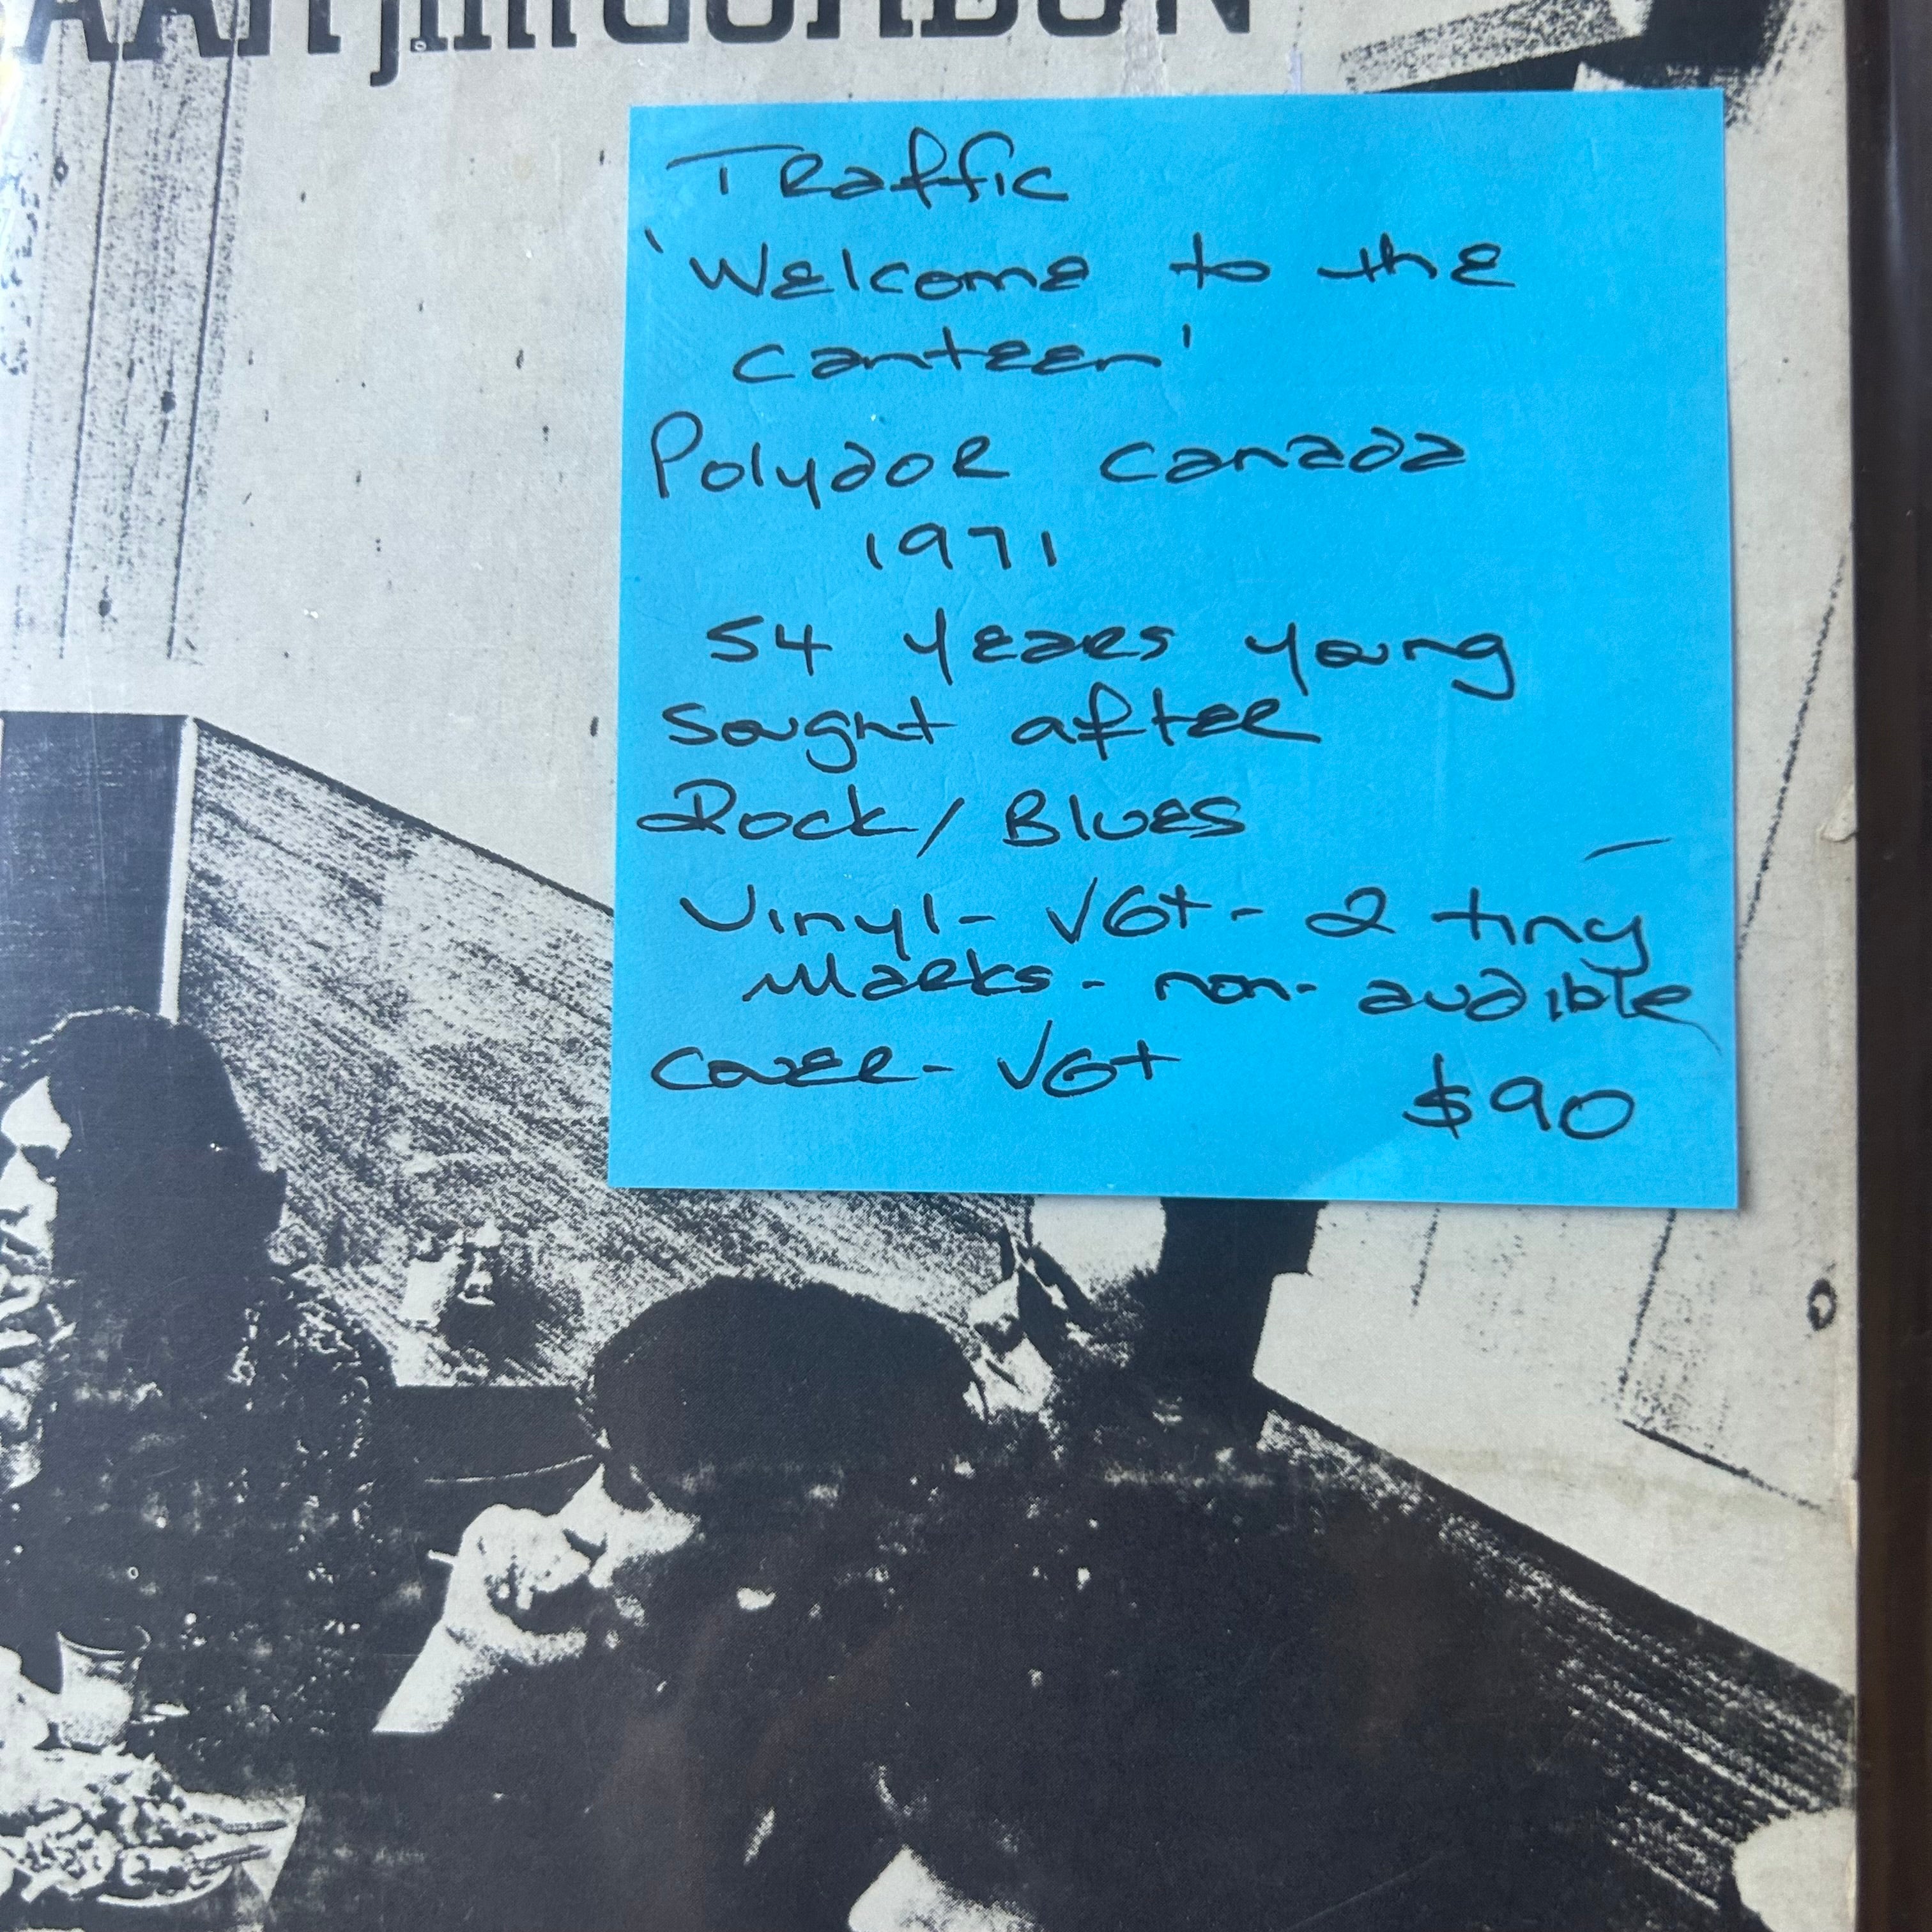 Jim GORDON
Traffic
'Welcome to the
Canteen'
Polydor Canada
1971
54 years young
Sought after
Rock/Blues
Vinyl- VG+ - 2 tiny
Marks - non- audible
Cover- VG+
$90